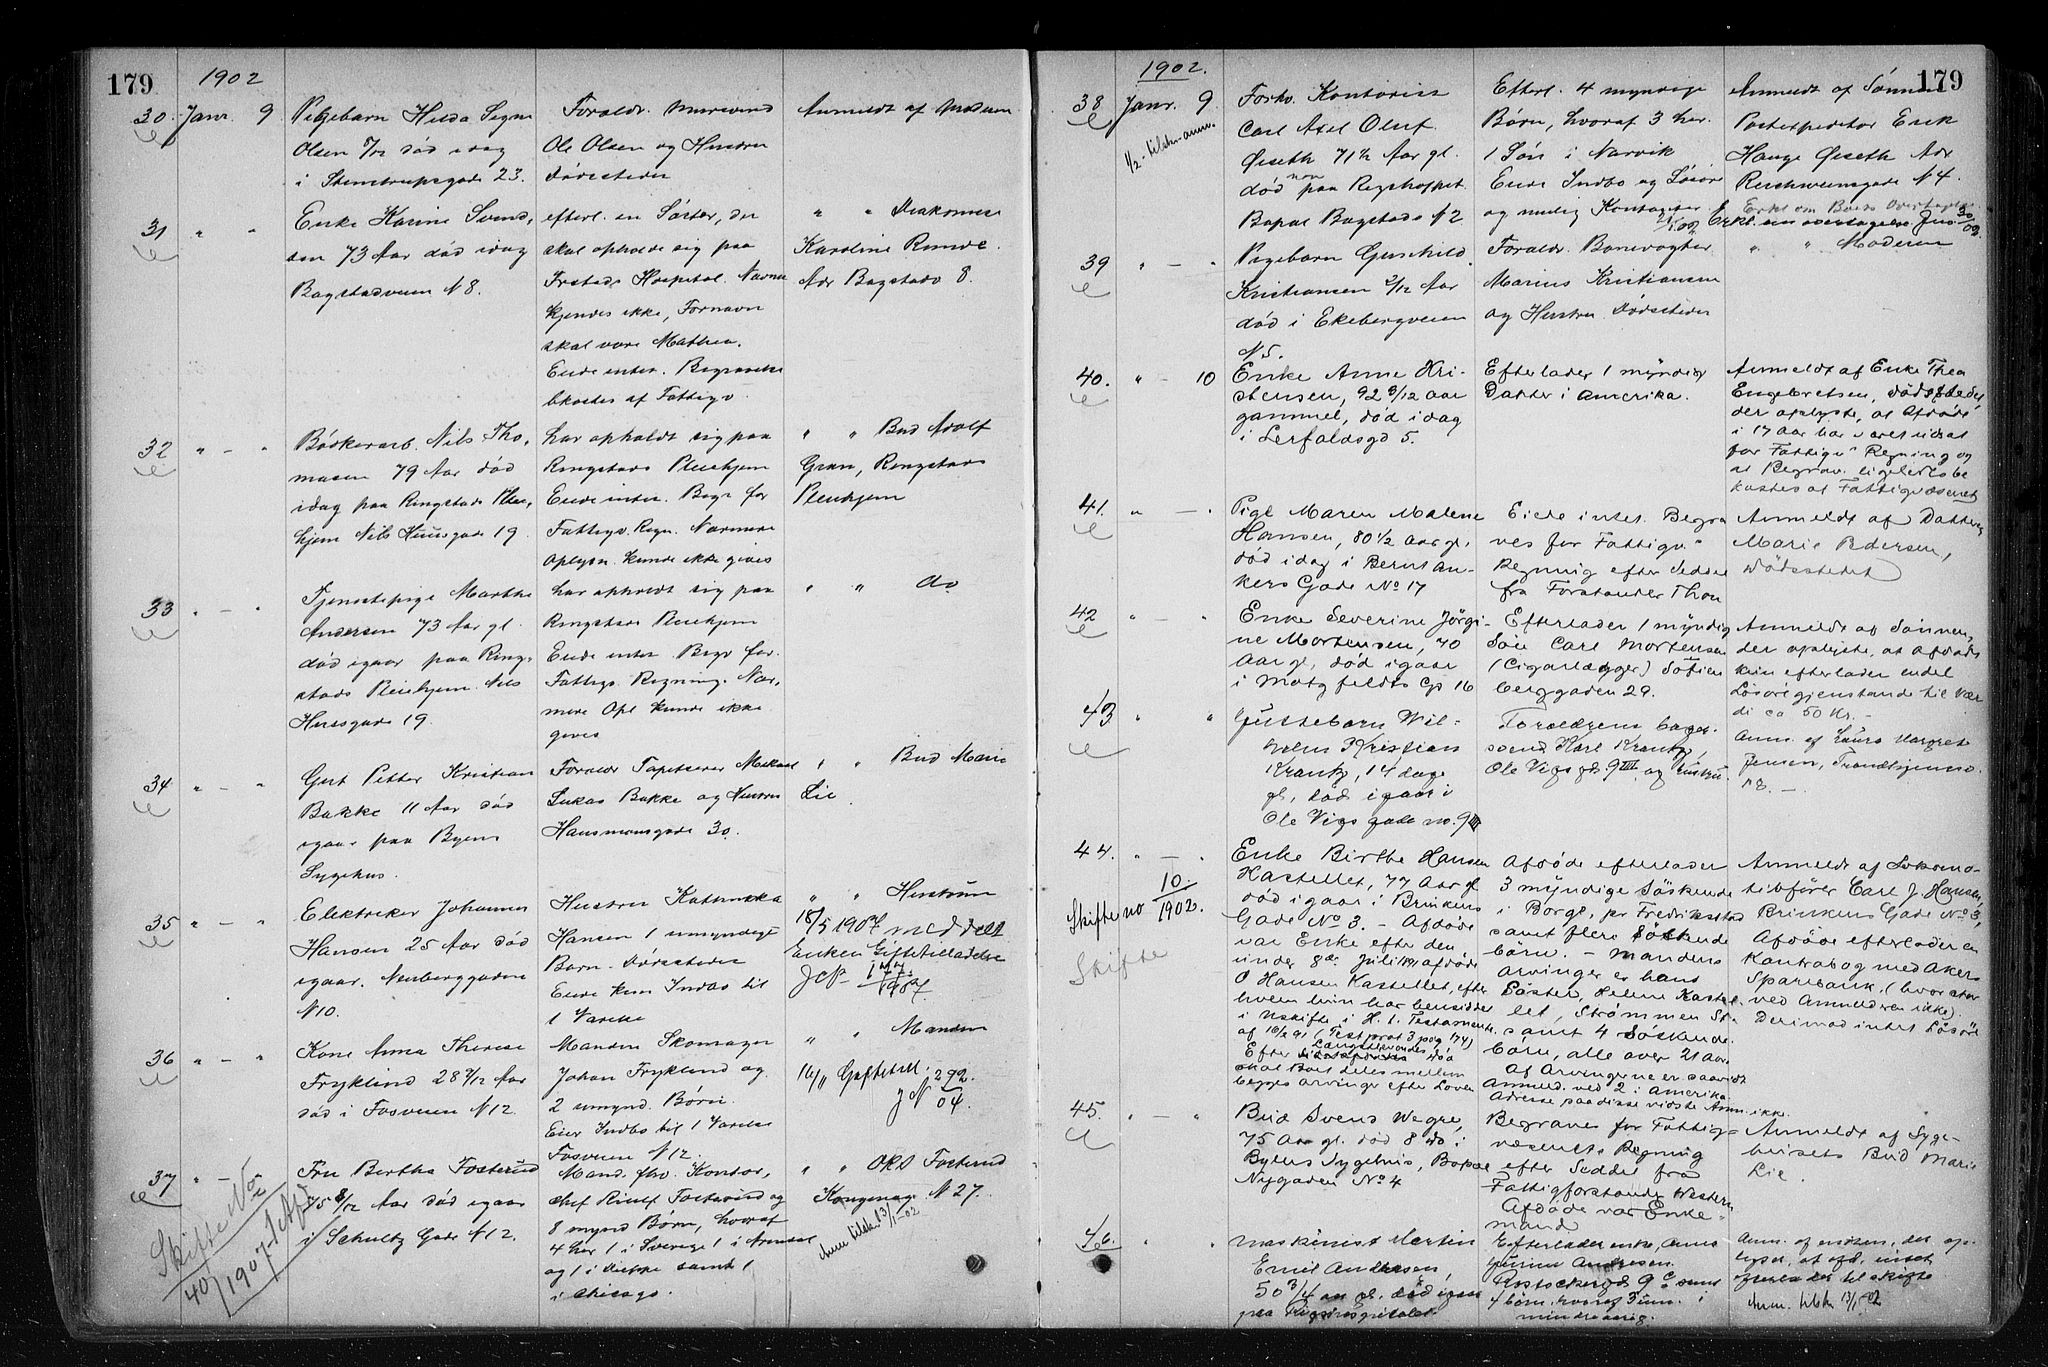 179
1902
30. Janr. 9
Pigebarn Hilda Signe
Olsen 7/12 død idag
i Stenstrupsgade 23.
Foraldr. Murersvend
Ole Olsen og Hustru
Dødsstedet
Anmeldt af Moderen
31 " "
Enke Karine Svend,
sen 73 Aar død idag
Bogstadveien N 8.
efterl. en Søster, der
skal opholde sig paa
Hospital. Navnet
kjendes ikke, Fornavn
skal være Mathea.
Eiede intet. Begravelse
bekostes af Fattigv.
" " Diakonisse
Karoline Runde
Adr Bogstadv 8.
32 " - "
Nils Tho,
masen 79 Aar død
idag paa Ringstads Pleie,
hjem Nils Huusgade 19
har opholdt sig paa
Ringstads Pleiehjem
Eiede intet. Begr for
Fattigv. Regn. Nærmere
Oplysn. kunde ikke gives
" " Bud Adolf
Gran, Ringstads
Pleiehjem
33 " - "
Tjenestepige Marthe
Andersen 73 Aar gl.
død igaar paa Ring,
stads Pleiehjem Nils
Huusgade 19.
har opholdt sig paa
Ringstads Pleiehjem
Eiede intet. Begr for.
Fattigv. Regning. Nær,
mere Opl kunde ikke
gives
" " do
34 " - "
Gut Petter Kristian
Bakke 11 Aar død
igaar paa Byens
Sygehus.
Foraldr Tapetserer Mikael
Lukas Bakke og Hustru
Hausmansgade 30.
" " Bud Marie
Lie.
35 " - "
Elektriker Johannes
Hansen 25 Aar død
igaar. Neubergaden
N10.
Hustru Kathinka
Hansen 1 umyndigt
Barn. Dødsstedet
Eiede kun Indbo til
1 Værelse
" " Hustrun
18/5 1907 meddelt
Enken Giftetilladelse
36 " - "
Kone Anna Therese
Fryklind 28 2/12 Aar
død i Fosveien N12.
Manden Skomager
Johan Fryklind og
2 umynd. Børn.
Eier Indbo til 1 Værelse
Fosveien N12.
" " Manden
16/11 Giftetill. 292.
J N 04.
37 " - "
Fru Bertha Fosterud
75 8/12 Aar død igaar
i Schultz Gade N12.
Mand. fhv. Kontor,
chef Fosterud og
8 mynd Børn, hvoraf
4 her 1 i Sverige 1 i Arendal
og 1 i Dieppe samt 1
i Chicago.
" " Fosterud
Kongensg. N 27.
Anm tilst. 13/1-02
Skifte No
40/1907 1 Afd
179
1902.
38 Janr. 9.
1/2 - tilst. anm.
Forhv. Kontorist
Carl Axel Oluf
Øiseth 71 1/2 Aar gl.
død paa Rigshospt.
Bopæl Bogstadv N2
Efterl. 4 myndige
Børn, hvoraf 3 her.
1 Søn i Narvik
Eiede Indbo og Løsøre
og mulig Kontanter
Anmeldt af Sønnen
Postexpeditør Erik
Hauge Øiseth Adr
Reichweinsgade N 4.
Erkl om Boets Overtagelse
Erkl. om overtagelse 30/02.
39 " - "
Pigebarn Gunhild
Kristiansen 2/12 Aar
død i Ekebergveien
N 5.
Foraldr. Banevogter
Marius Kristiansen
og Hustru Dødsstedet
" " Moderen
40. " - 10
Enke Anne Kri-
stensen, 92 9/12 aar
gammel, død idag
i Lerfaldsgd 5.
Efterlader 1 myndig
Datter i Amerika.
Anmeldt af Enke Thea
Engebretsen, dødsstedet
der oplyste, at Afdøde
i 17 Aar har været udsat
for Fattigv. Regning og
at Begrav. ligeledes be
kostes af Fattigvæsenet
41. " - "
Pige Maren Malene
Hansen, 80 1/2 Aar gl.
død idag i Bernt An-
kers Gade No 17
Eiede intet. Begra
ves for Fattigv.
Regning efter Seddel
fra Forstander Thon
Anmeldt af Datteren
Marie Pedersen,
Dødsstedet
42 " - "
Enke Severine Jørgi-
ne Mortensen, 70
Aar gl, død igaar
i Motzfeldts Gd 16
Efterlader 1 myndig
Søn Carl Mortensen
(Cigarlægger) Sofien
berggaden 29.
Anmeldt af Sønnen,
der oplyste, at Afdøde
kun efterlader endel
Løsøregjenstande til Vær
di ca 50 Kr. -
43 " "
Guttebarn Wil-
helm Kristian
Krantz, 14 dage
gl, død igaar i
Ole Vigs gade no. 9 III
Forældrene bager-
svend Karl Krantz,
Ole Vigs gd. 9 III og hustru
Anm. af Laura Margret
Jensen, Trondhjemsv.
13. -
44. " - "
Skifte no 10./1902.
Skifte
Enke Birthe Hansen
Kastellet, 77 Aar gl
død igaar i Brinkens
Gade No 3. - Afdøde
var Enke efter den
under 8de Juli 1891 afdøde
O Hansen Kastellet, efter
hvem hun har hensiddet
i uskifte i H. t. Testamente
af 16/2 91 (Test prot 3 pag 174)
Efter Længstlevendes død
skal Boet deles mellem
begges arvinger efter Loven
Afdøde efterlader
3 myndige Søskende
i Borge, pr Fredrikstad
samt flere Søskende
børn. - Mandens
Arvinger er hans
Søster, Helene Kastel
let, Strømmen St.
samt 4 Søskende
børn, alle over 21 aar.
Af Arvingerne er saavidt
Anmeld. ved 2 i Amerika
Adresse paa disse vidste Anm. ikke.
Anmeldt af Lokomo-
tivfører Carl J. Hansen,
Brinkens Gade No 3,
Afdøde efterlader en
Kontrabog med Akers
Sparebank, (hvor stor
ved Anmelderen ikke).
Derimod intet Løsøre
45. " - "
Bud Svend Wegre,
75 Aar gl. død 8 do i
Byens Sygehus, Bopæl
Nygaden No 4
Begraves for Fattig-
væsenets Regning
efter Seddel fra
Fattigforstander Western
Afdøde var Enke-
mand
Anmeldt af Syge-
husets Bud Marie
Lie.
46. " "
Maskinist Martin
Emil Andersen,
50 3/4 aar gl. død igaar
paa Rigshospitalet
Efterlader enke, Anna
Andresen
Rostockergd 9 c samt
4 børn, hvoraf 3 um. i
mindreaarig.
Anm. af enken, der op-
lyser, at afd. intet
efterlader til skifte
Anm. tilst. 13/1 02